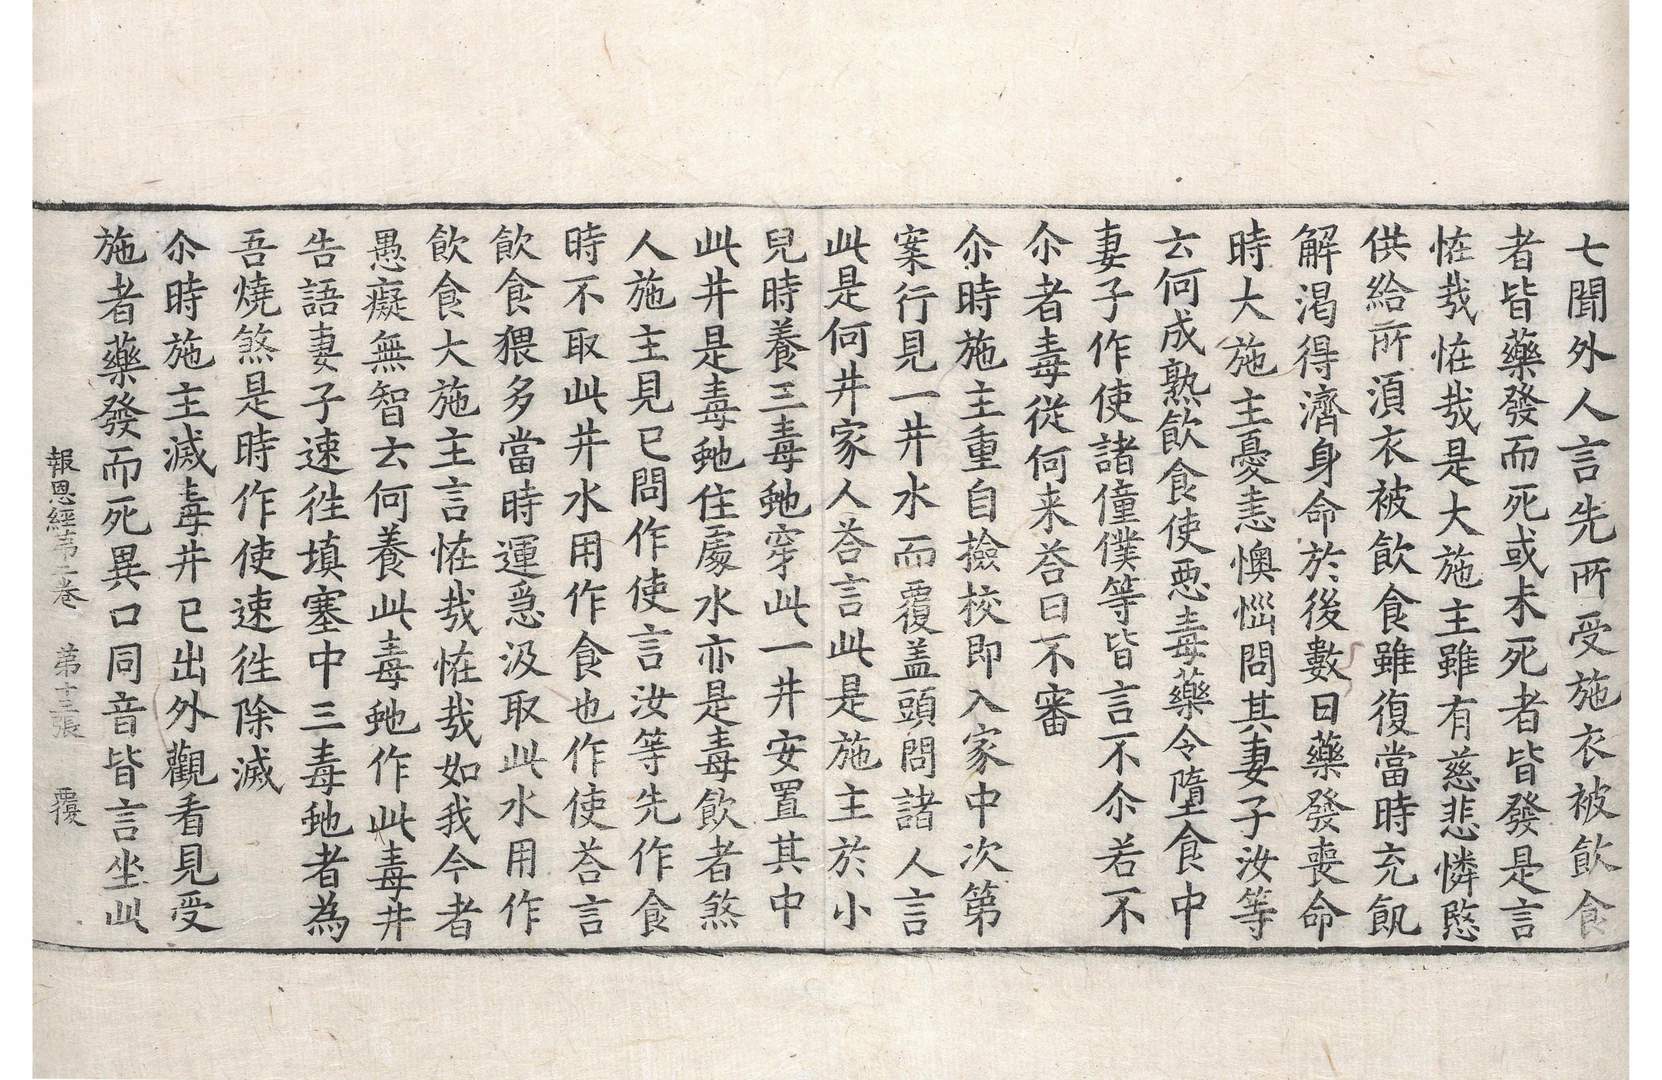 七聞外人言先所受施衣被飲食
者皆藥發而死或未死者皆發是言
恠㢤恠㢤是大施主雖有慈悲憐愍
供給所湏衣被飲食雖復當時充飢
解渴得濟身命於後數日藥發喪命
時大施主憂恚懊惱問其妻子汝等
云何成熟飲食使惡毒藥令墮食中
妻子作使諸僮僕等皆言不尒若不
尒者毒從何来荅曰不審
尒時施主重自撿校即入家中次第
案行見一井水而覆盖頭問諸人言
此是何井家人荅言此是施主於小
兒時養三毒虵穿此一井安置其中
此井是毒虵住處水亦是毒飲者煞
人施主見已問作使言汝等先作食
時不取此井水用作食也作使荅言
飲食猥多當時運急汲取此水用作
飲食大施主言恠㢤恠㢤如我今者
愚癡無智云何養此毒虵作此毒井
告語妻子速徃填塞中三毒虵者為
吾燒煞是時作使速徃除滅
尒時施主滅毒井已出外觀看見受
施者藥發而死異口同音皆言坐此
報恩經苐二卷 第十三張 覆